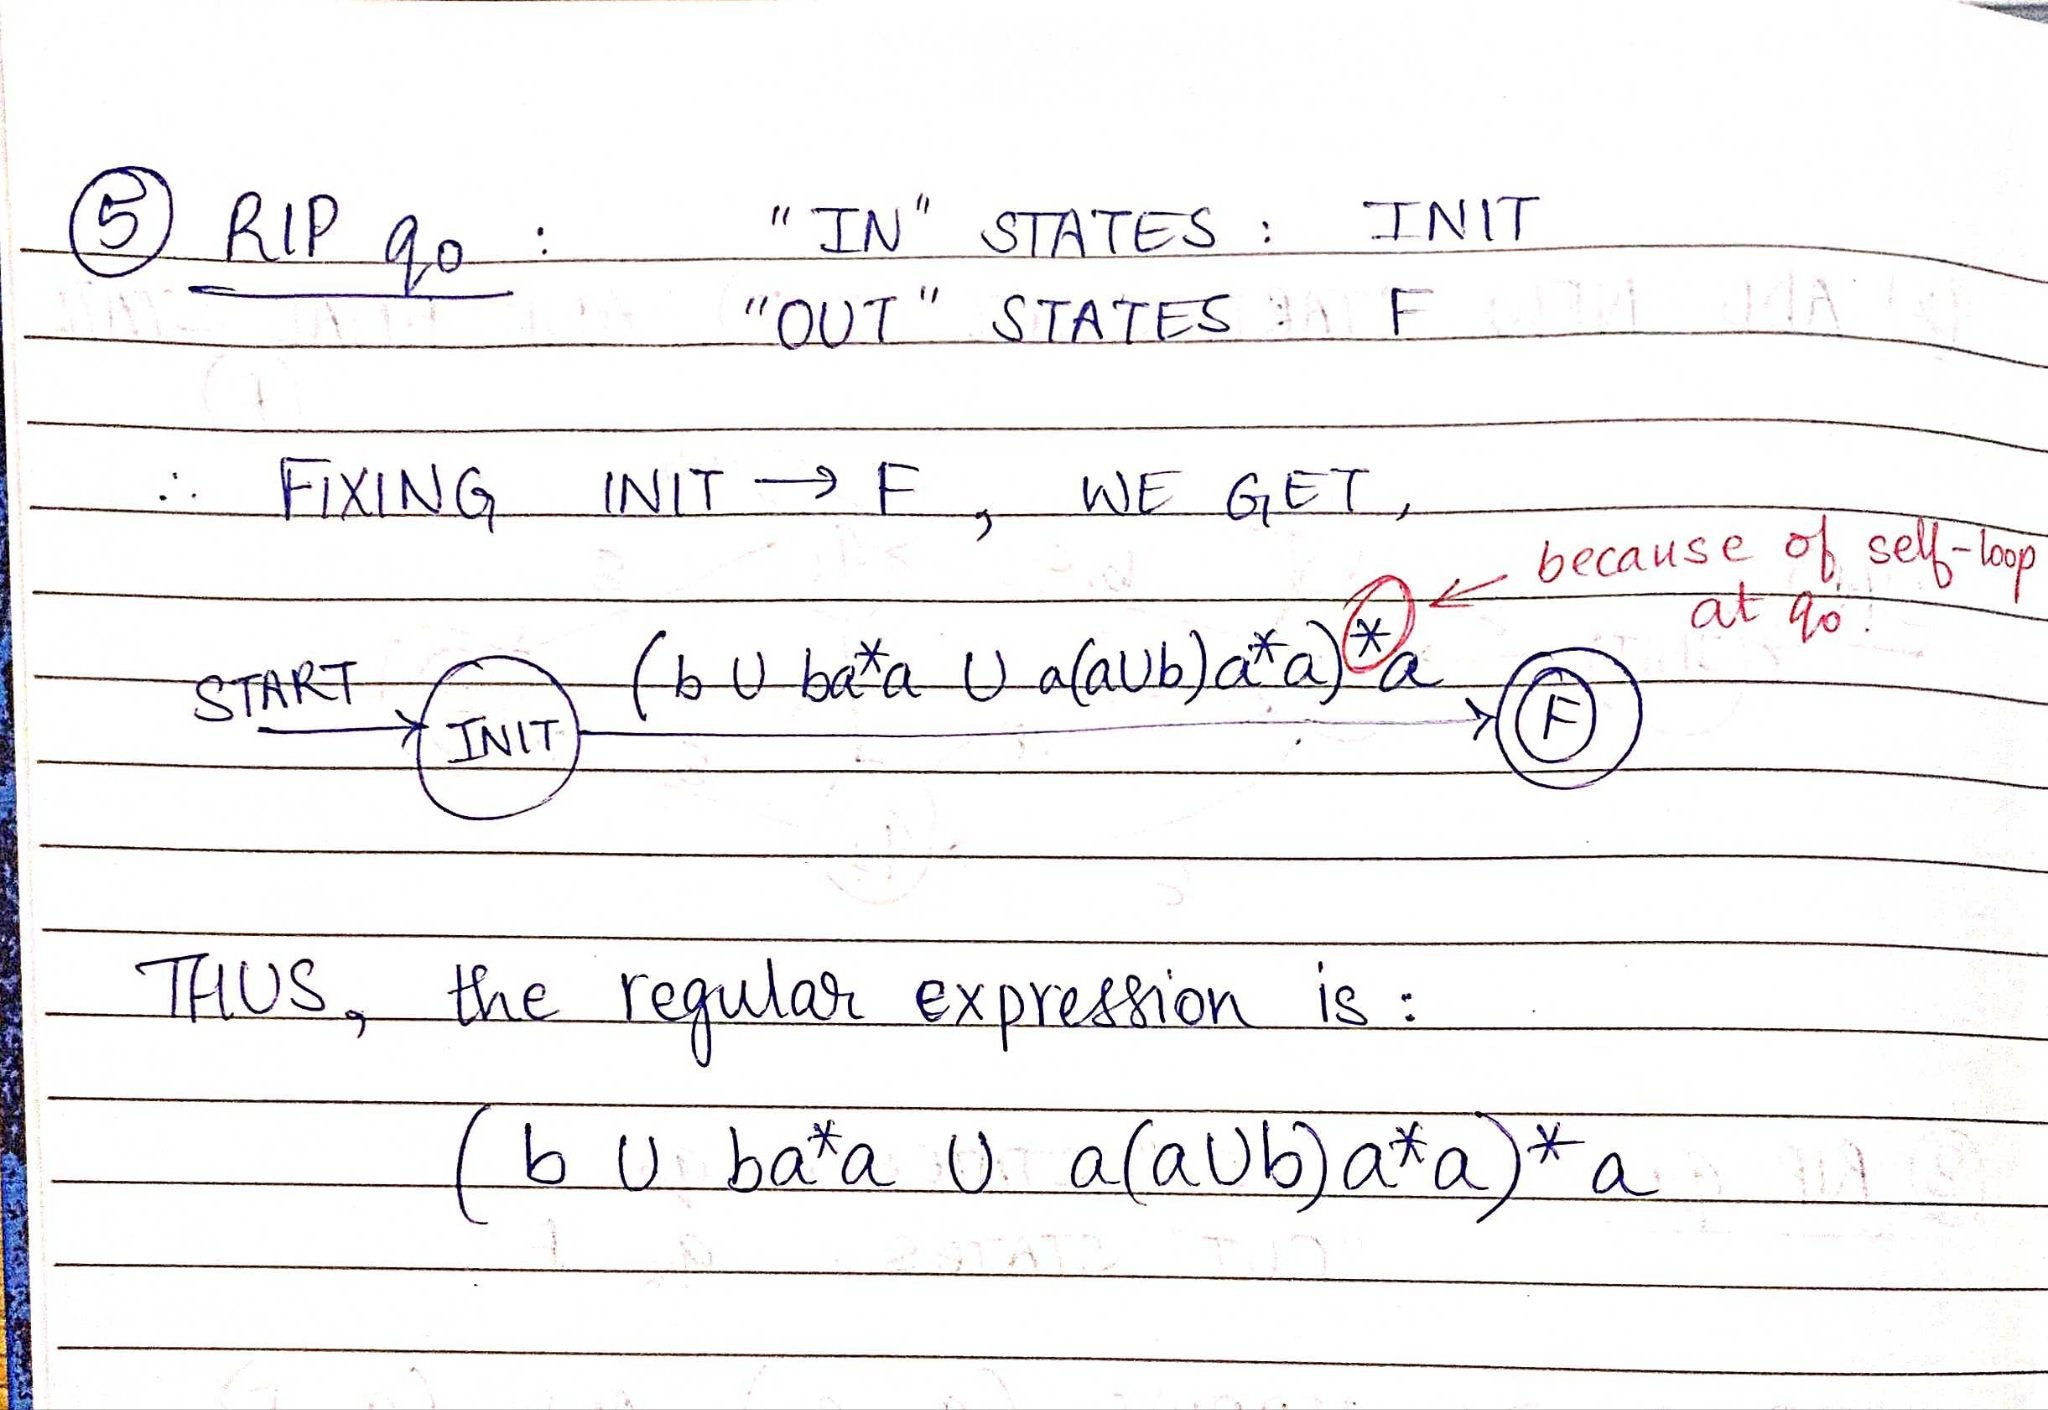 ⑤ RIP q0 : "IN" STATES : INIT
"OUT" STATES : F
∴ FIXING INIT → F, WE GET,
because of self-loop
at q0.
START INIT (b ∪ ba*a ∪ a(a∪b)a*a)*a F
THUS, the regular expression is :
(b ∪ ba*a ∪ a(a∪b)a*a)*a